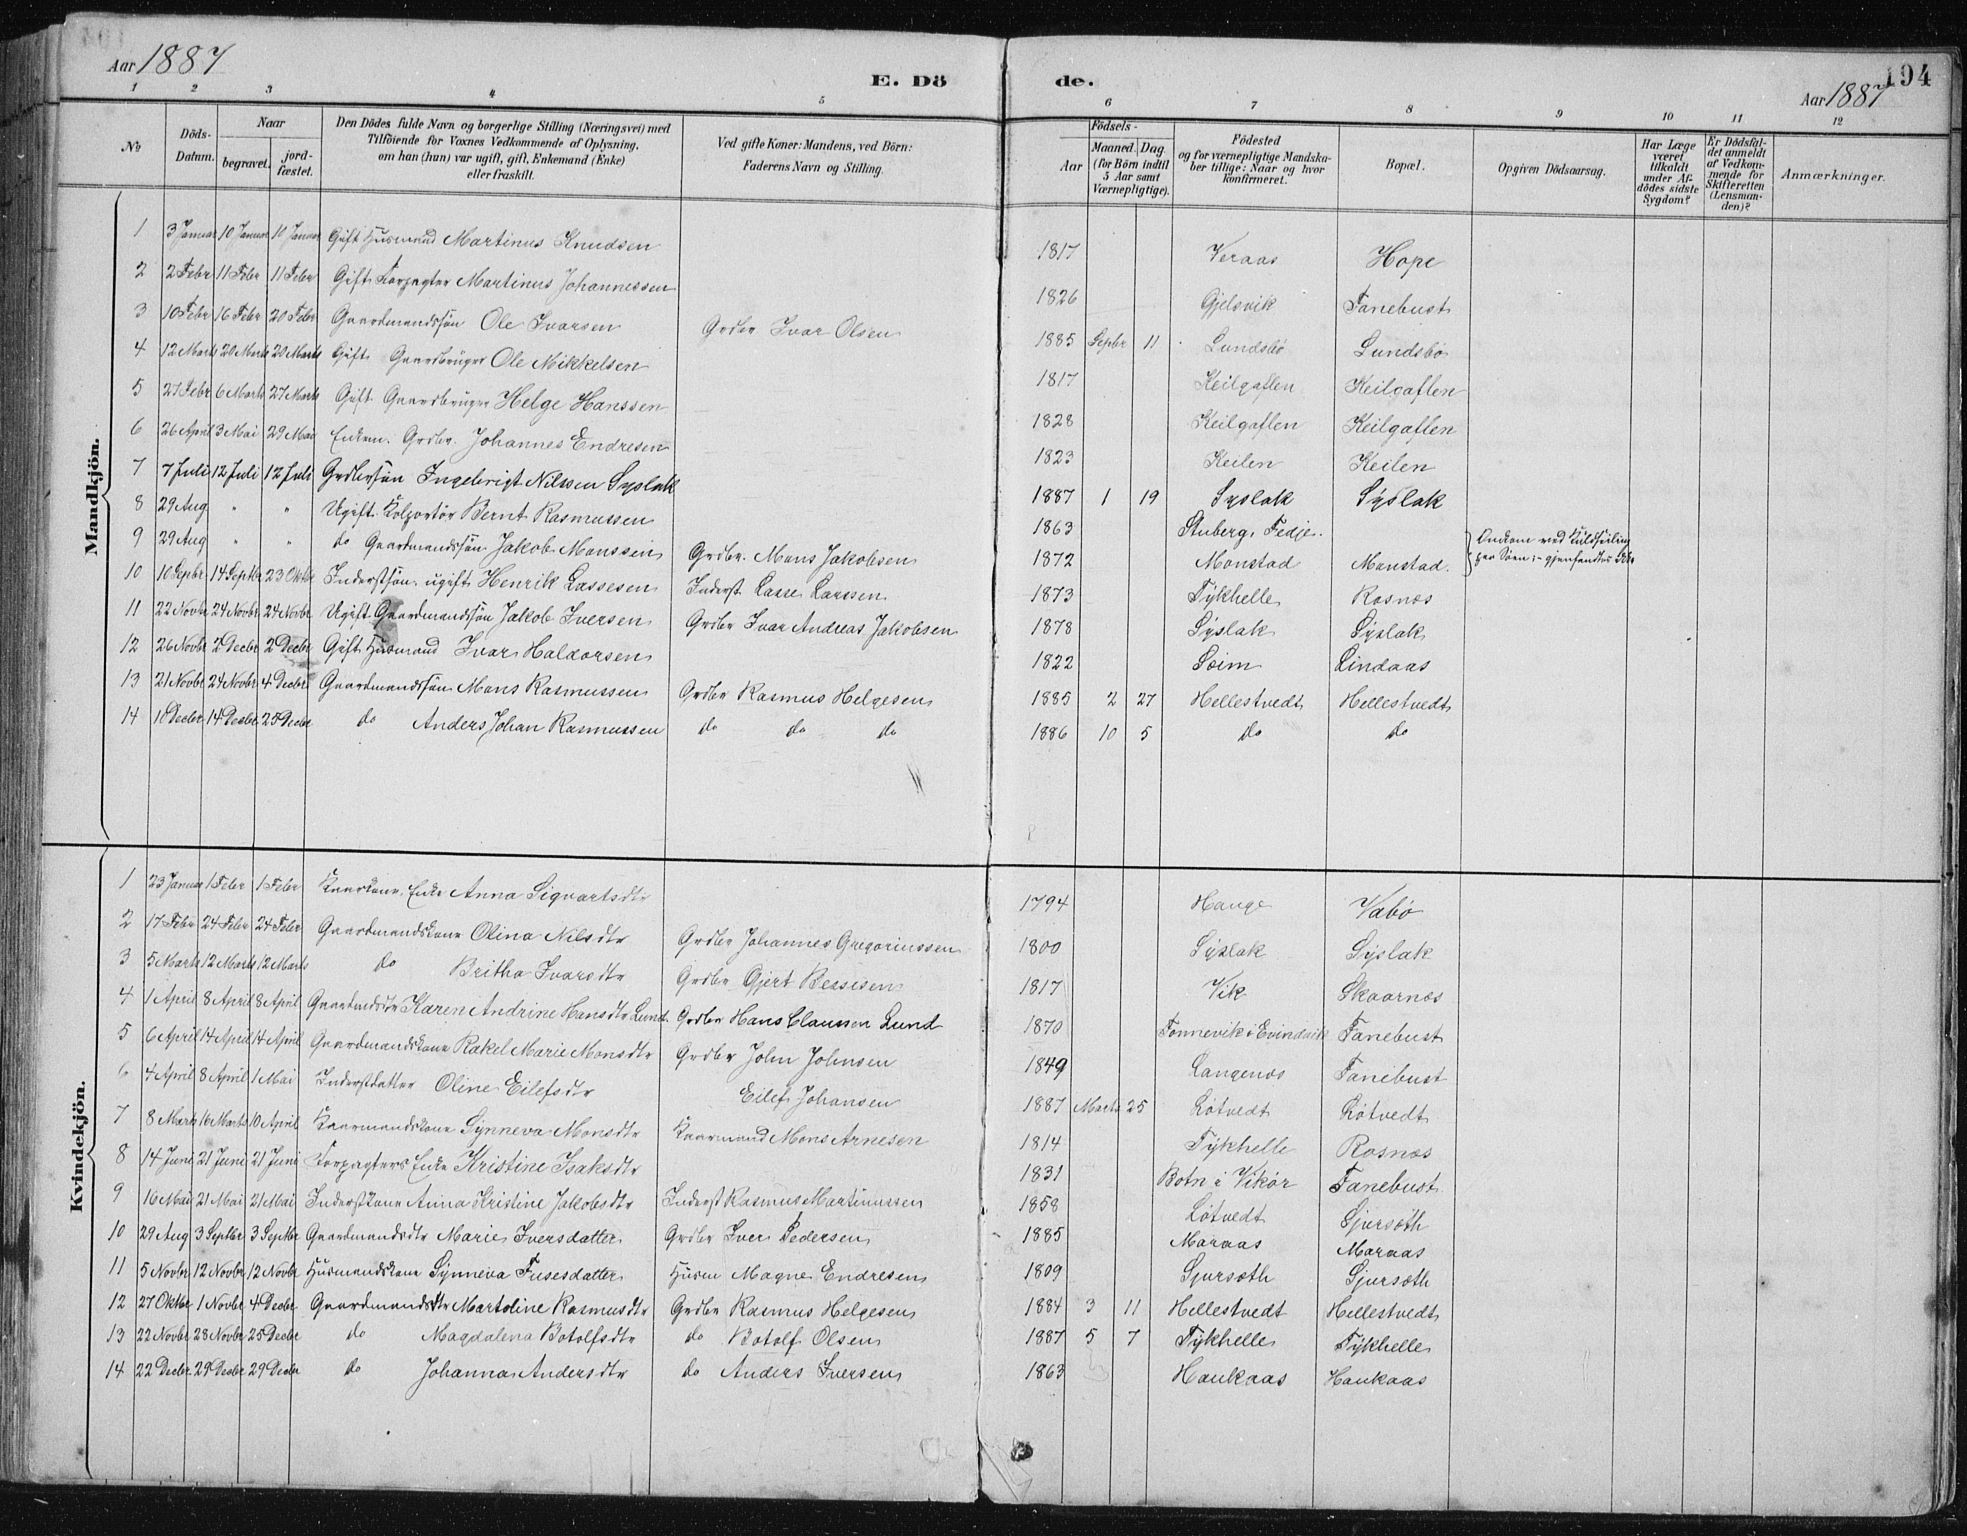 Aar 1887
E. Döde.
194
Aar 1887
1 2 3 4 5 6 7 8 9 10 11 12
No
Döds-Datum.
Naar
begravet.
jordfæstet.
Den Dödes fulde Navn og borgerlige Stilling (Næringsvei) med
Tilföiende for Voxnes Vedkommende af Oplysning.
om han (hun) var ugift, gift, Enkemand (Enke)
eller fraskilt.
Ved gifte Koner: Mandens, ved Börn:
Faderens Navn og Stilling.
Födsels-
Aar
Maaned. Dag
(for Börn indtil
5 Aar samt
Værnepligtige).
Födested
og for værnepligtige Mandskaber tillige: Naar og hvor
konfirmeret.
Bopæl.
Opgiven Dödsaarsag.
Har Læge
været
tilkaldt
under Afdödes sidste
Sygdom?
Er Dödsfaldet anmeldt
af Vedkommende for
Skifteretten
(Lensmanden)?
Anmærkninger.
Mandkjön.
1 3 Januar 10 Januar 10 Januar Gift Husmand Martinus Knudsen 1817 Veraas Hope
2 2 Febr 11 Febr 11 Febr Gift Forpagter Martinus Johannessen 1826 Gjelsvik Fanebust
3 10 Febr 16 Febr 20 Febr Gaardmandssön Ole Ivarsen Grdbr Ivar Olsen 1885 Septbr 11 Lundsbö Lundsbö
4 12 Marts 20 Marts 20 Marts Gift Gaardbruger Ole Mikkelsen 1817 Keilgaflen Keilgaflen
5 27 Febr 6 Marts 27 Marts Gift Gaardbruger Helge Hanssen 1828 Keilgaflen Keilgaflen
6 26 April 3 Mai 29 Mai Enkem. Grdbr. Johannes Endresen 1823 Keilen Keilen
7 7 Juli 12 Juli 12 Juli Grdbrsön Ingebrigt Nilssen Syslak 1887 1 19 Syslak Syslak
8 29 Aug " " Ugift Kolportör Bernt Rasmussen 1863 Stuberg, Fedje.
9 29 Aug " " do Gaardmandssön Jakob Monssen Grdbr. Mons Jakobsen 1872 Monstad Monstad. Omkom ved Kuldseiling paa Söen; gjenfandtes ikke
10 10 Septbr 14 Septbr 23 Oktbr Inderstsön. ugift Henrik Lassesen Inderst Lasse Larssen 1873 Tykhelle Rosnæs
11 22 Novbr 24 Novbr 24 Novbr Ugift Gaardmandssön Jakob Iversen Grdbr Ivar Andreas Jakobsen 1878 Syslak Syslak
12 26 Novbr 2 Decbr 2 Decbr Gift Husmand Ivar Haldorsen 1822 Seim Lindaas
13 21 Novbr 24 Novbr 4 Decbr Gaardmandssön Mons Rasmussen Grdbr Rasmus Helgesen 1885 2 27 Hellestvedt Hellestvedt
14 10 Decbr 14 Decbr 25 Decbr do Anders Johan Rasmussen do do do 1886 10 5 do do
Kvindekjön.
1 23 Januar 1 Febr 1 Febr Kaarkone, Enke Anna Siqvartsdtr 1794 Hauge Vabö
2 17 Febr 24 Febr 24 Febr Gaardmandskone Olina Nilsdtr Grdbr Johannes Gregoriussen 1800 Syslak Syslak
3 5 Marts 12 Marts 12 Marts do Britha Ivarsdtr Grdbr Gjert Bessesen 1817 Vik Skaarnæs
4 1 April 8 April 8 April Gaardmdsdtr Karen Andrine Hansdtr Lund. Grdbr Hans Claussen Lund 1870 Tonnevik i Evindvik Fanebust
5 6 April 14 April 14 April Gaardmandskone Rakel Marie Monsdtr Grdbr John Johnsen 1849 Langenæs Fanebust
6 4 April 8 April 1 Mai Inderstdatter Oline Eilefsdtr Eilef Johansen 1887 Marts 25 Lötvedt Lötvedt
7 8 Marts 16 Marts 10 April Kaarmandskone Synneva Monsdtr Kaarmand Mons Arnesen 1814 Tykhelle Rosnæs
8 14 Juni 21 Juni 21 Juni Forpagters Enke Kristine Isaksdtr 1831 Botn i Vikör Fanebust
9 16 Mai 21 Mai 21 Mai Inderstkone Anna Kristine Jakobsdtr Inderst Rasmus Martinussen 1858 Lötvedt Gjersöth
10 29 Aug 3 Septbr 3 Septbr Gaardmandsdtr Marie Iversdatter Grdbr Iver Pedersen 1885 Maraas Maraas
11 5 Novbr 12 Novbr 12 Novbr Husmandskone Synneva Fusesdatter Husm Magne Endresen 1809 Gjersöth Gjersöth
12 27 Oktbr 1 Novbr 4 Decbr Gaardmandsdtr Martoline Rasmusdtr Grdbr Rasmus Helgesen 1884 3 11 Hellestvedt Hellestvedt
13 22 Novbr 28 Novbr 25 Decbr do Magdalena Botolfsdtr do Botolf Olsen 1887 5 7 Tykhelle Tykhelle
14 22 Decbr 29 Decbr 29 Decbr do Johanna Andersdtr do Anders Iversen 1863 Haukaas Haukaas